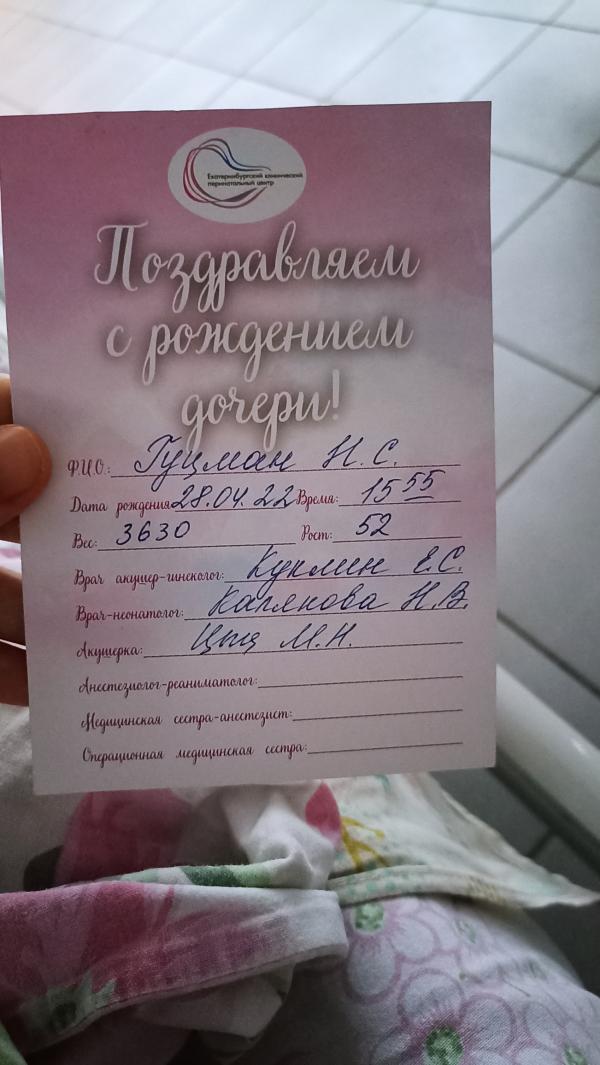 Екатеринбургский клинический
перинатальный центр
Поздравляем
с рождением
дочери!
Ф.И.О.: Гуцман Н. С.
Дата рождения 28.04.22 Время: 15 55
Вес: 3630 Рост: 52
Врач акушер-гинеколог: Куклин Е.С.
Врач-неонатолог: Карякова Н.В.
Акушерка: Цыц М.Н.
Анестезиолог-реаниматолог:
Медицинская сестра-анестезист:
Операционная медицинская сестра: